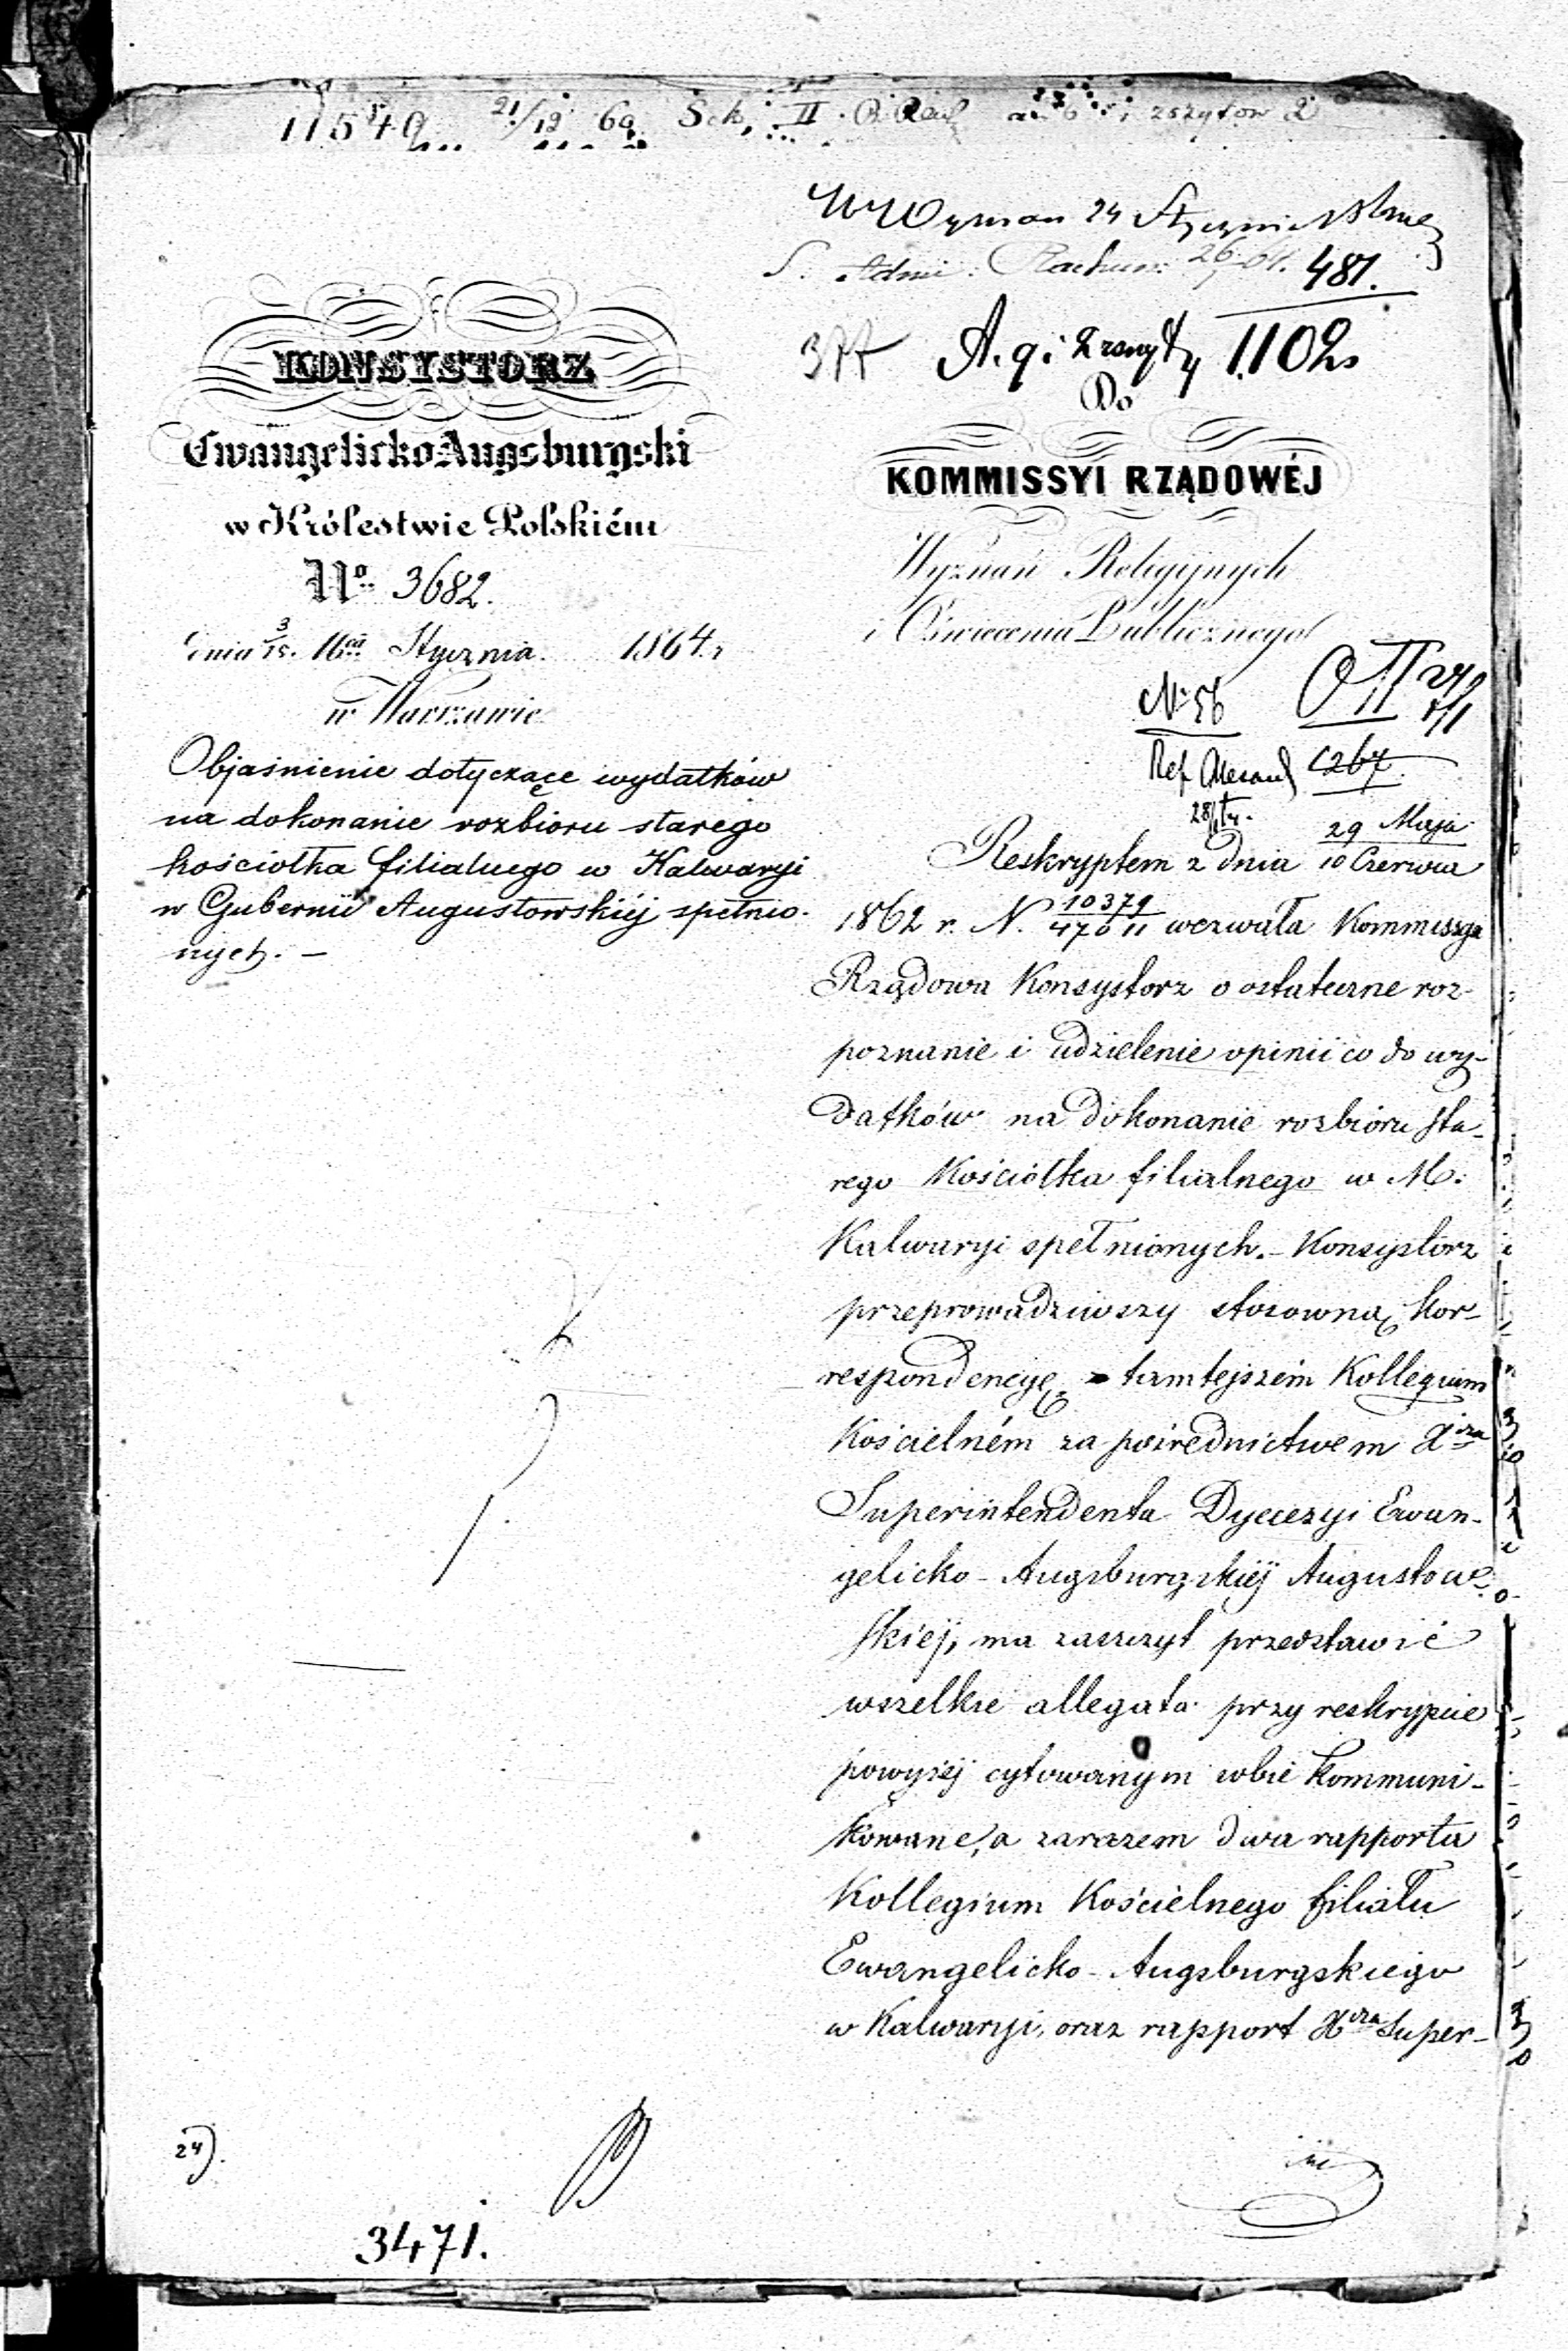 11540 21/12 60 II
24
S. Admi: Rachun: 26/1 64. 481.
1102
Do
KONSYSTORZ
Ewangelicko-Augsburgski
w Królestwie Polskiém
No 3682.
dnia 3/15. 16go Stycznia. 1864 r.
w Warszawie
Objaśnienie dotyczące wydatków
na dokonanie rozbioru starego
kościołka filialnego w Kalwaryi
w Gubernii Augustowskiéj spełnio-
nych. –
KOMMISSYI RZĄDOWÉJ
Wyznań Religijnych
i Oświecenia Publicznego
N. 56
Ref.
Reskryptem z dnia 29 Maja/10 Czerwca
1862 r. N. 10379/47011 wezwała Kommissya
Rządowa Konsystorz o ostateczne roz-
poznanie i udzielenie opinii co do wy-
datków na dokonanie rozbioru sta-
rego Kościołka filialnego w M:
Kalwaryi spełnionych. – Konsystorz
przeprowadziwszy stosowną kor-
respondencyę z tamtejszém Kollegium
Kościelném za pośrednictwem Xdza
Superintendenta Dyecezyi Ewan-
gelicko-Augsburgskiéj Augustow-
skiej, ma zaszczyt przedstawić
wszelkie allegata przy reskrypcie
powyżej cytowanym sobie kommuni-
kowane, a zarazem dwa rapporta
Kollegium Kościelnego filiału
Ewangelicko-Augsburgskiego
w Kalwaryi, oraz rapport Xdza Super-
24).
3471.